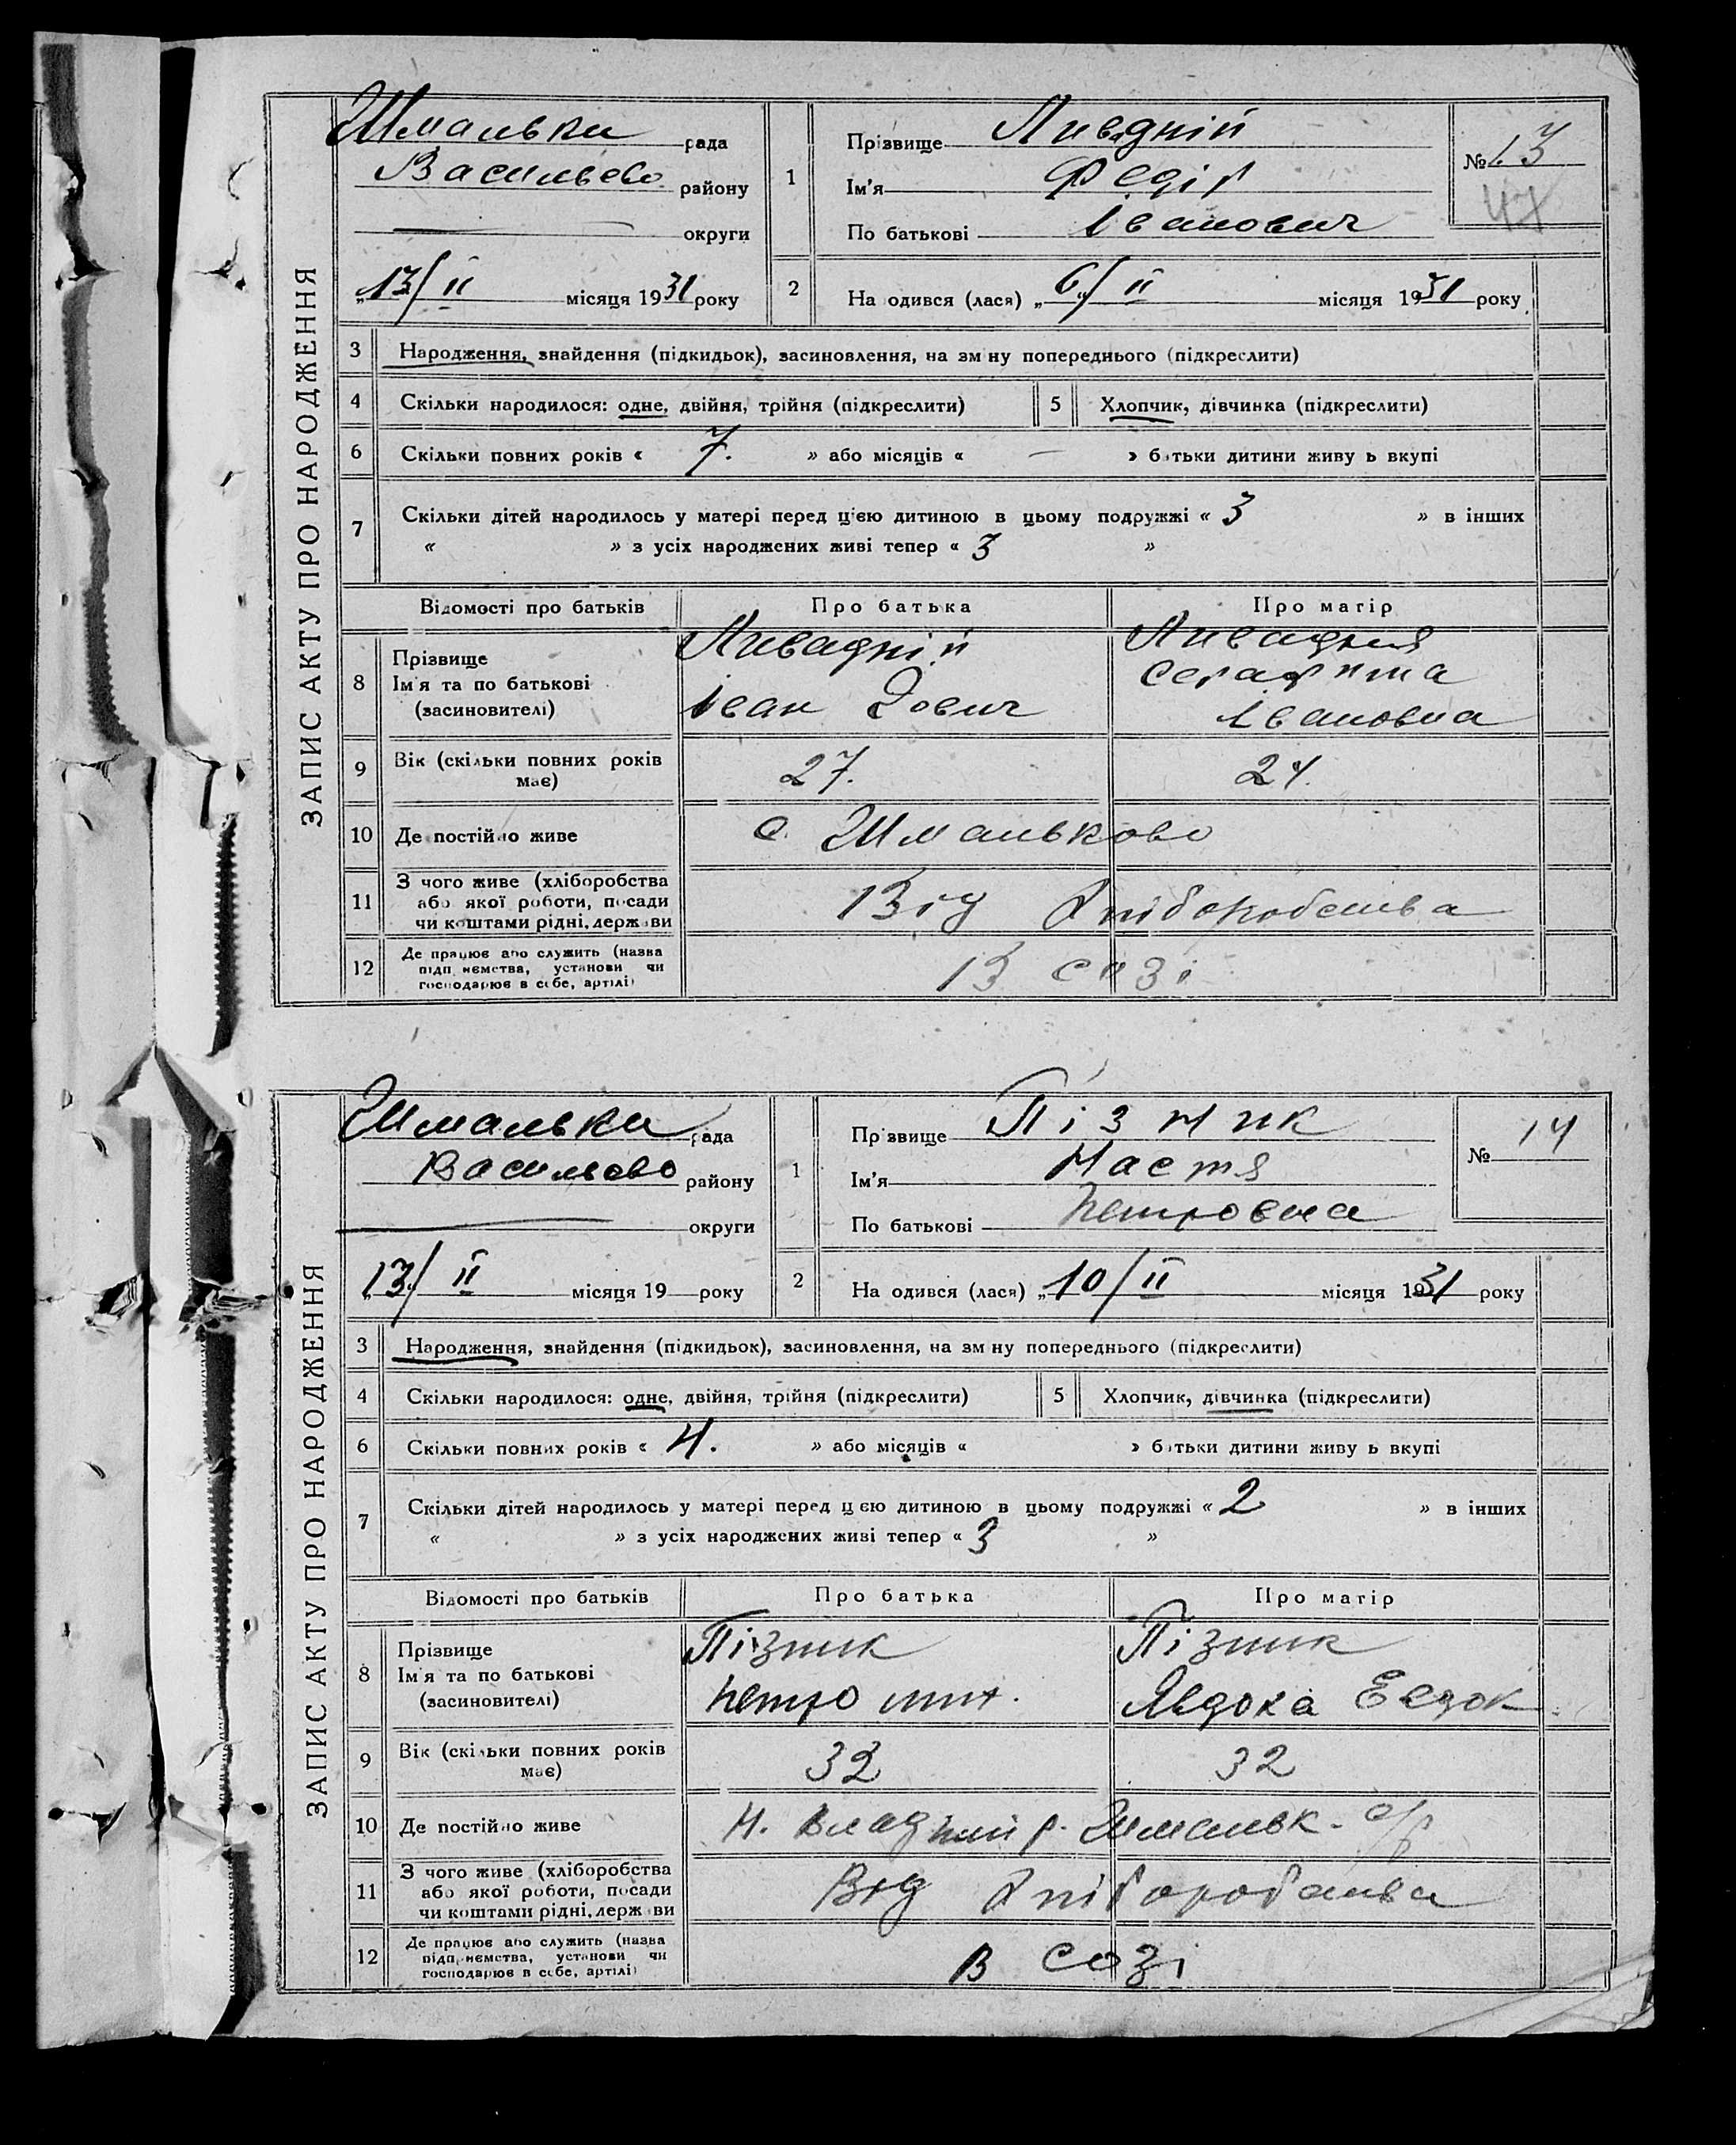 ЗАПИС АКТУ ПРО НАРОДЖЕННЯ
Шмальки рада
Васильево району
округи
„13/II місяця 1931 року
1
Прізвище Ливадній
Ім'я Федір
По батькові Іванович
№ 13
47
2
На одився (лася) „6/II місяця 1931 року
3 Народження, знайдення (підкидьок), засиновлення, на зм ну попереднього (підкреслити)
4 Скільки народилося: одне, двійня, трійня (підкреслити) 5 Хлопчик, дівчинка (підкреслити)
6 Скільки повних років « 7. » або місяців « — » батьки дитини живу ь вкупі
7 Скільки дітей народилось у матері перед цією дитиною в цьому подружжі « 3 » в інших
« » з усіх народжених живі тепер « 3 »
Відомості про батьків Про батька Про матір
8 Прізвище Ім'я та по батькові (засиновителі)
Ливадній
Іван
Ливадния
Серафима
Івановна
9 Вік (скільки повних років має) 27. 24.
10 Де постійно живе с. Шмальково
11 З чого живе (хліборобства або якої роботи, посади чи коштами рідні, держави Від хліборобства
12 Де працює або служить (назва підприємства, установи чи господарює в себе, артілі) В созі
ЗАПИС АКТУ ПРО НАРОДЖЕННЯ
Шмальки рада
Васильево району
округи
„13/II місяця 19 року
1
Прізвище Пізник
Ім'я Настя
По батькові Петровна
№ 14
2
На одився (лася) „10/II місяця 1931 року
3 Народження, знайдення (підкидьок), засиновлення, на зм ну попереднього (підкреслити)
4 Скільки народилося: одне, двійня, трійня (підкреслити) 5 Хлопчик, дівчинка (підкреслити)
6 Скільки повних років « 4. » або місяців « » батьки дитини живу ь вкупі
7 Скільки дітей народилось у матері перед цією дитиною в цьому подружжі « 2 » в інших
« » з усіх народжених живі тепер « 3 »
Відомості про батьків Про батька Про матір
8 Прізвище Ім'я та по батькові (засиновителі)
Пізник
Петро
Пізник
Явдоха Евдок
9 Вік (скільки повних років має) 32 32
10 Де постійно живе Н. Владимір. Шмальк. с/р
11 З чого живе (хліборобства або якої роботи, посади чи коштами рідні, держави Від хліборобства
12 Де працює або служить (назва підприємства, установи чи господарює в себе, артілі) В созі